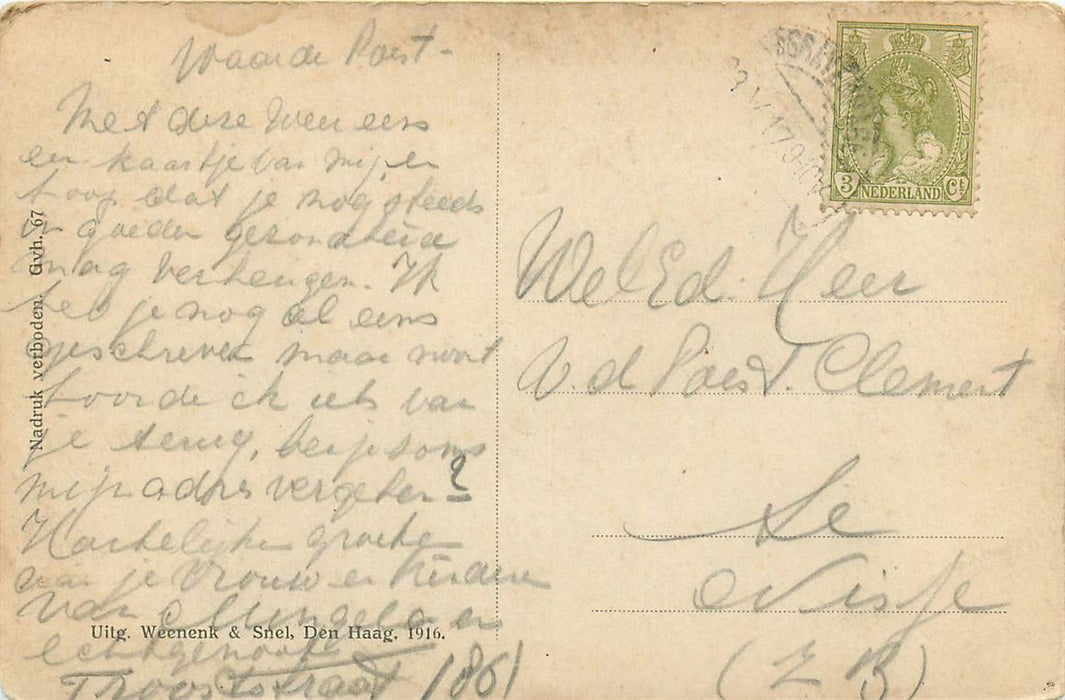 Waarde Poest-
Met deze weer eens
een kaartje van mij, en
hoop dat je nog steeds
in goeden gezondheid
mag verheugen. Ik
heb je nog al eens
geschreven maar nooit
hoorde ik iets van
je terug, ben je soms
mijn adres vergeten?
Hartelijke groeten
aan je Vrouw en kinderen
van Mengele en
echtgenoote
Trooststraat 186
Nadruk verboden. Gvh. 67
Uitg. Weenenk & Snel, Den Haag. 1916.
3 NEDERLAND CT
WelEd. Heer
v.d Poest. Clement
Te
Nisse
(Z B)